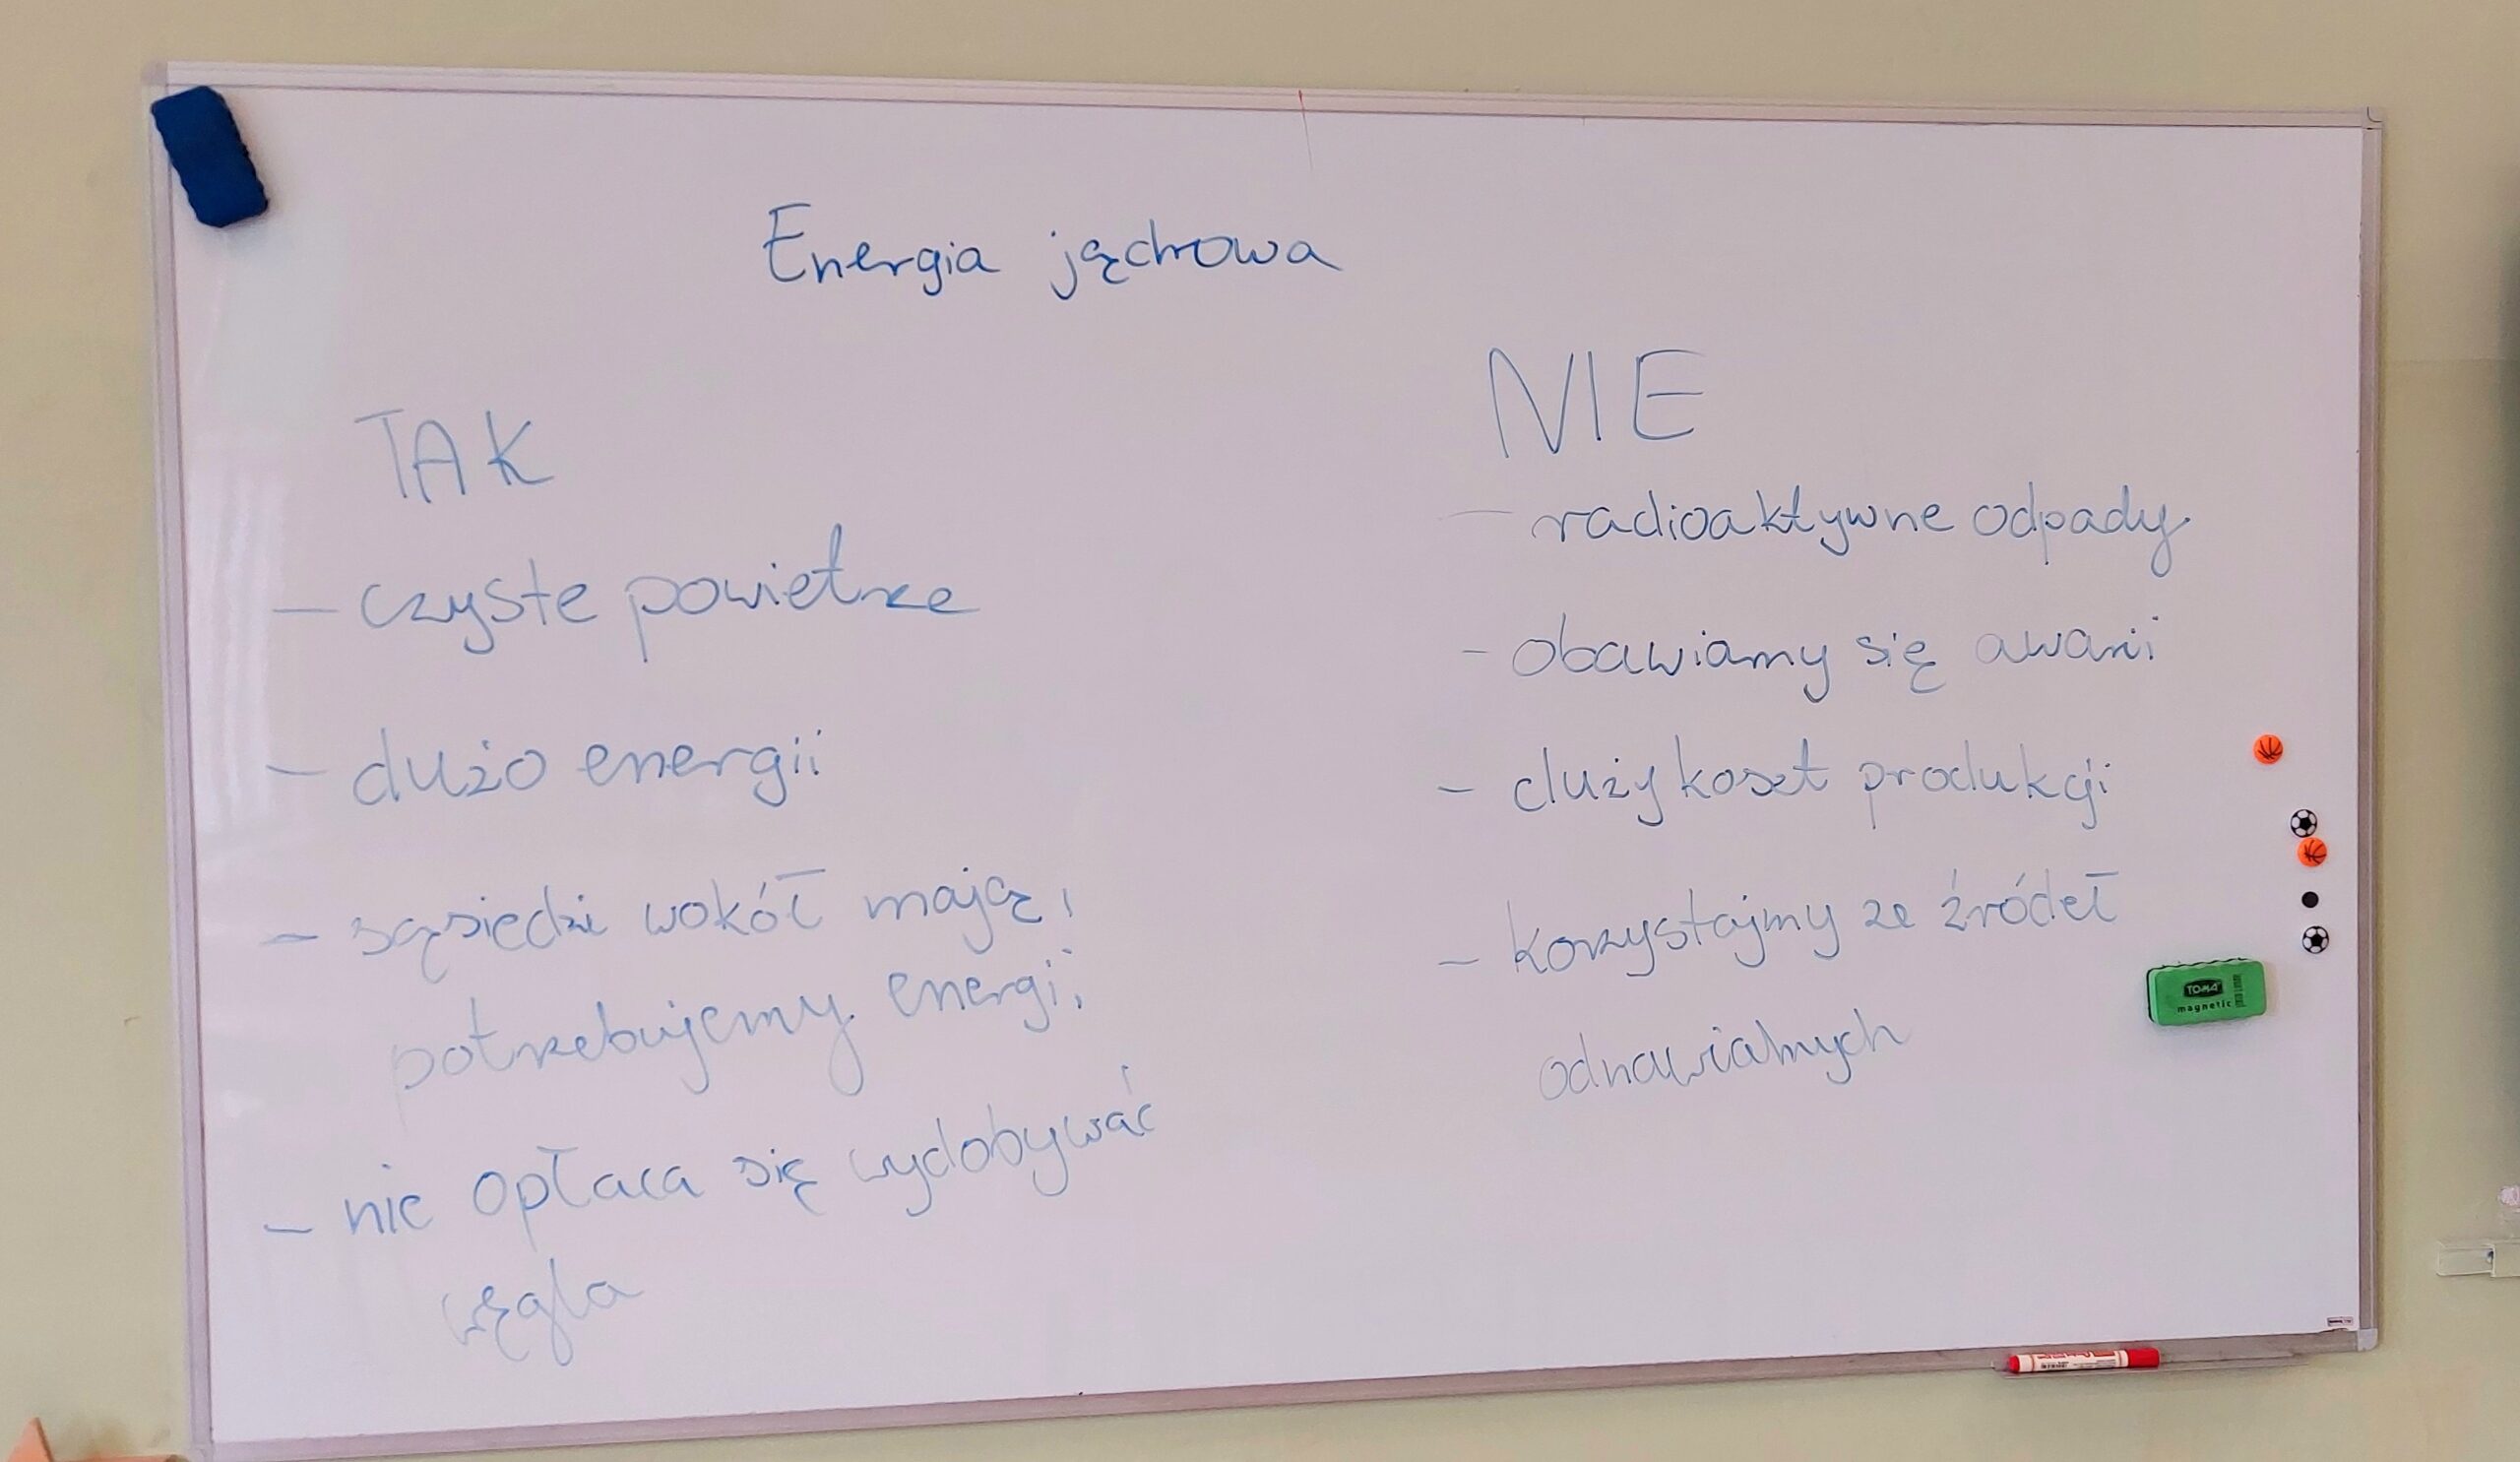 Energia jądrowa
TAK
- czyste powietrze
- dużo energii
- sąsiedzi wokół mają,
potrzebujemy energii
- nie opłaca się wydobywać
węgla
NIE
- radioaktywne odpady
- obawiamy się awarii
- duży koszt produkcji
- korzystajmy ze źródeł
odnawialnych
TOMA
magnetic